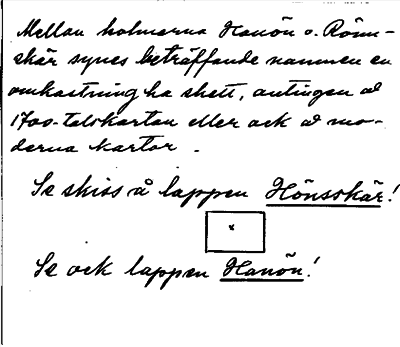 Mellan holmarna Hanön o. Rönn-
skär synes beträffande namnen en
omkastning ha skett, antingen å
1700-talskartan eller ock å mo-
derna kartor.
Se skiss å lappen Hönsskär!
x
Se ock lappen Hanön!